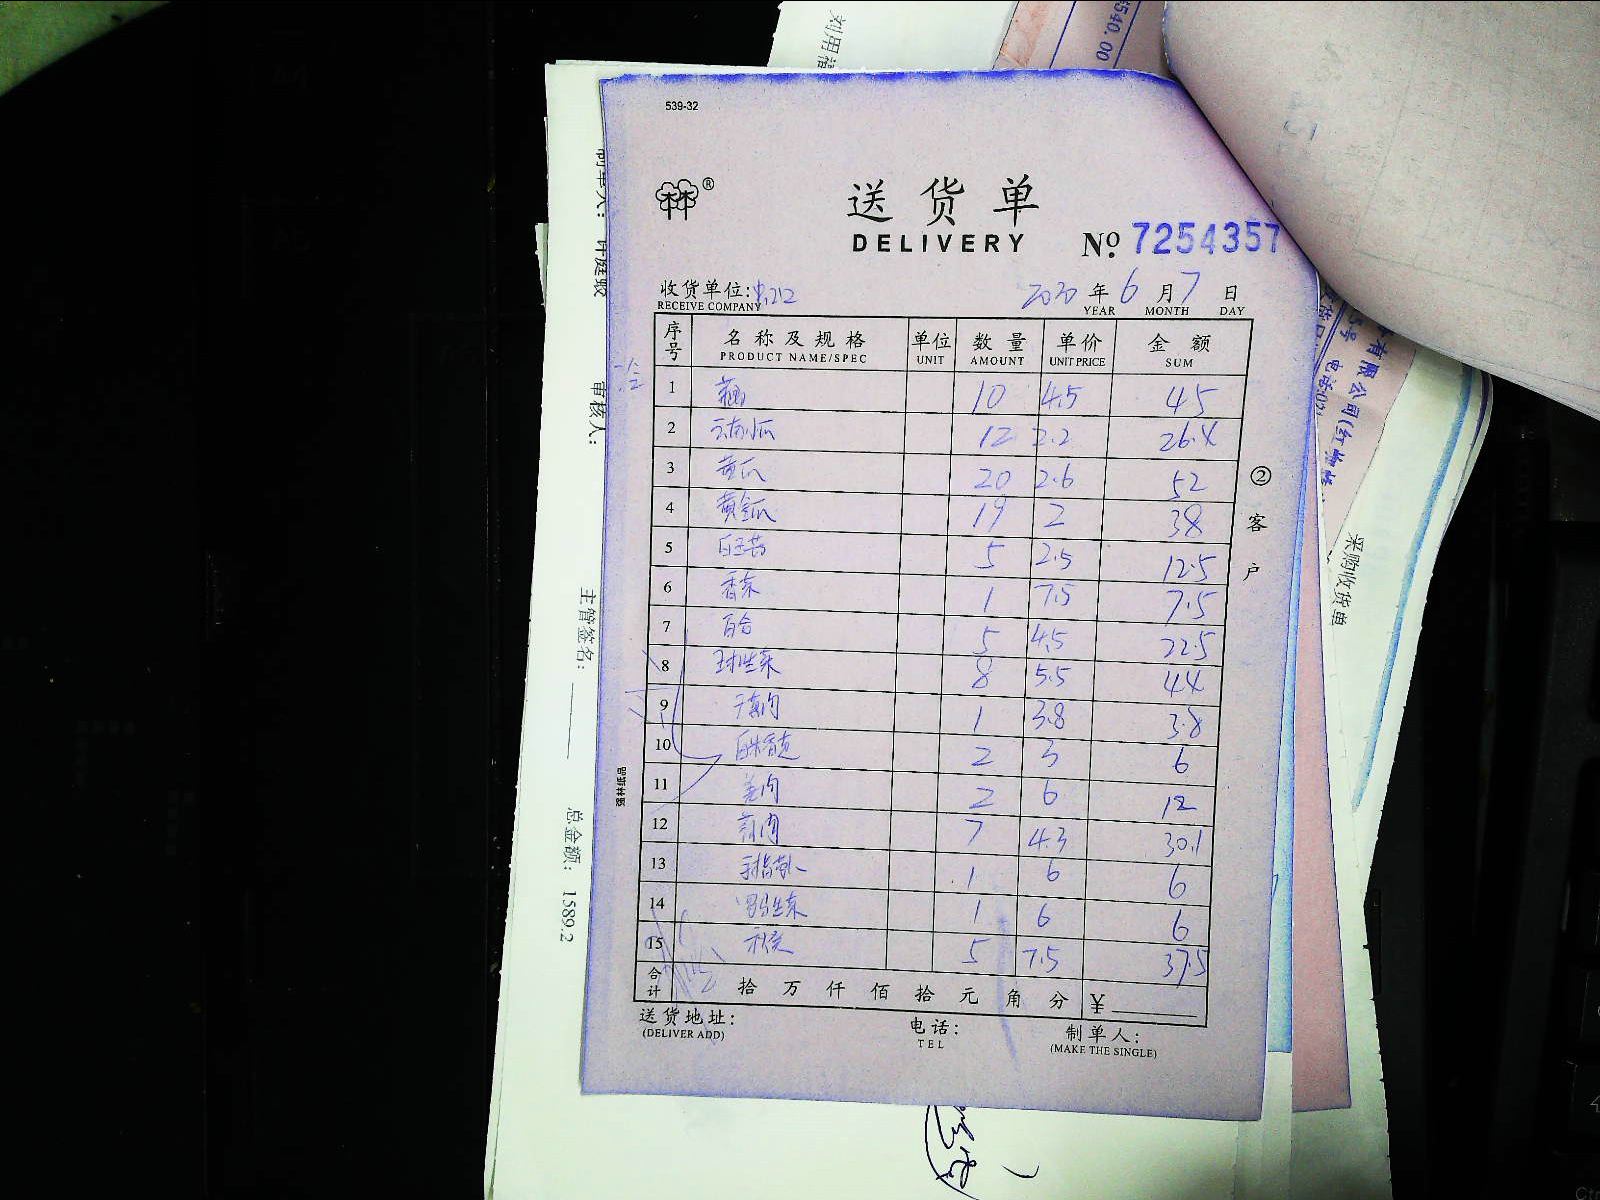 540.00
539-32
®
送货单
DELIVERY
№ 7254357
收货单位:
RECEIVE COMPANY
2020 年 6 月 7 日
YEAR MONTH DAY
序号 名称及规格 单位 数量 单价 金额
PRODUCT NAME/SPEC UNIT AMOUNT UNIT PRICE SUM
1 10 4.5 45
2 云南小瓜 12 2.2 26.4
3 黄瓜 20 2.6 52
4 黄金瓜 19 2 38
5 5 2.5 12.5
6 香菜 1 7.5 7.5
7 百合 5 4.5 22.5
8 球生菜 8 5.5 44
9 1 3.8 3.8
10 2 3 6
11 2 6 12
12 7 4.3 30.1
13 1 6 6
14 罗马生菜 1 6 6
15 5 7.5 37.5
合计 拾 万 仟 佰 拾 元 角 分 ¥
送货地址:
(DELIVER ADD)
电话:
TEL
制单人:
(MAKE THE SINGLE)
② 客户
强林纸品
审核人:
主管签名:
总金额: 1589.2
采购收货单
有限公司(红